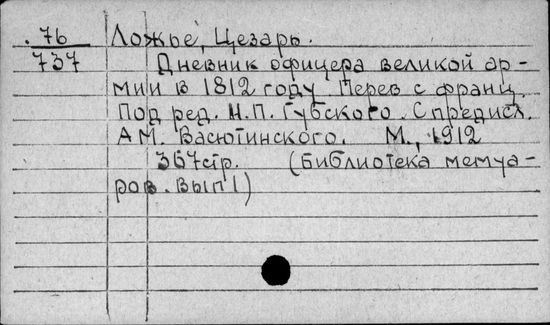 .76 Ложье, Цезарь.
737 Дневник офицера великой ар-
мии в 1812 году. Перев с франц.
Под ред. Н.П. Губского. С предисл.
А.М. Васютинского. М., 1912
367 стр. (Библиотека мемуа-
ров. Вып 1)